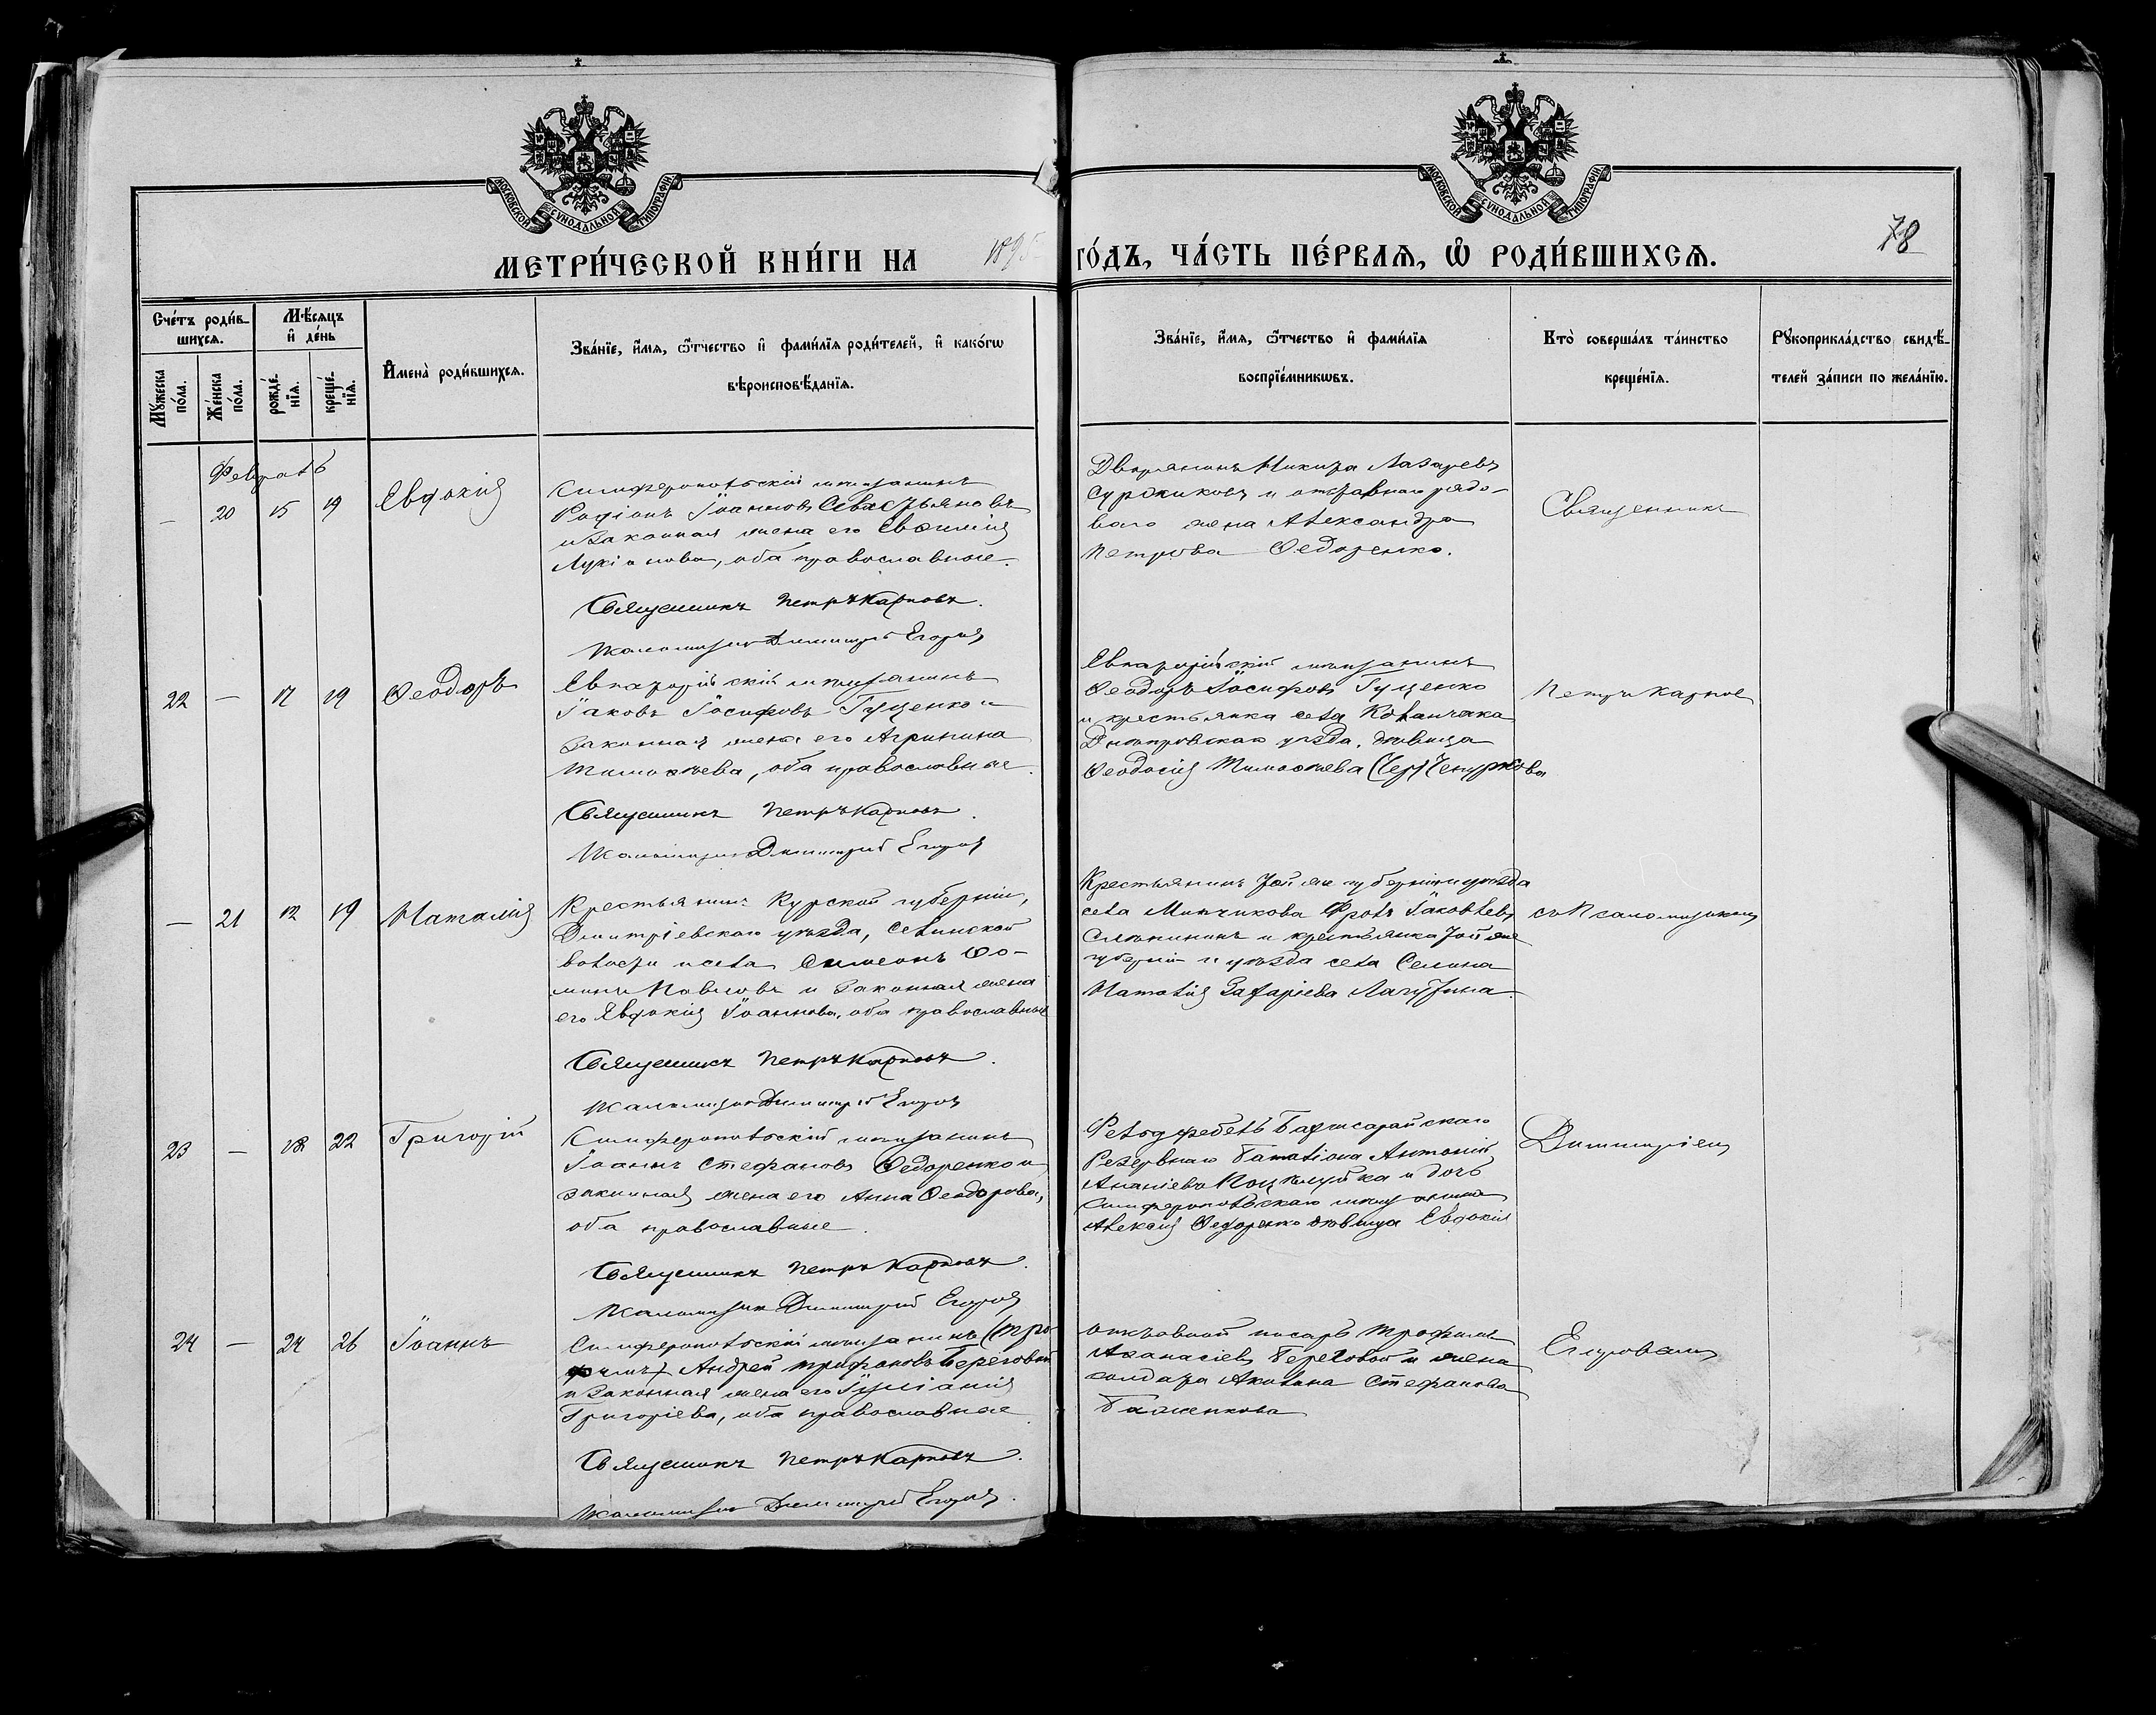 МОСКОВСКОЙ СѴНОДАЛЬНОЙ ТИПОГРАФІИ
МОСКОВСКОЙ СѴНОДАЛЬНОЙ ТИПОГРАФІИ
78
МЕТРИ́ЧЕСКОЙ КНИ́ГИ НА 1895 ГО́ДЪ, ЧА́СТЬ ПЕ́РВАѦ, Ѡ҆ РОДИ́ВШИХСѦ.
Сче́тъ роди́в-
шихсѧ.
Мꙋ́жеска по́ла.
Же́нска по́ла.
Мѣ́сѧцъ и҆ де́нь
рожде́-
нїѧ.
креще́-
нїѧ.
И҆мена̀ роди́вшихсѧ.
Зва́нїе, и҆́мѧ, ѻ҆́тчество и҆ фами́лїѧ роди́телей, и҆ како́гѡ
вѣроисповѣ́данїѧ.
Зва́нїе, и҆́мѧ, ѻ҆́тчество и҆ фами́лїѧ
воспрїе́мникѡвъ.
Кто̀ соверша́лъ та́инство
креще́нїѧ.
Рꙋкоприкла́дство свидѣ́-
телей за́писи по жела́нїю.
Февраль
— 20 15 19 Евдокія
Симферопольскій мѣщанинъ
Родіонъ Іоанновъ Севастьяновъ
и законная жена его Евфимія
Лукіанова, оба православные.
Священникъ Петръ Карповъ.
Псаломщикъ Димитрій Егоровъ
Дворянинъ Никита Лазаревъ
и отставного рядо-
вого жена Александра
Петрова Федоренко.
Священникъ
22 — 17 19 Ѳеодоръ
Евпаторійскій мѣщанинъ
Іаковъ Іосифовъ Гуценко и
законная жена его Агрипина
Тимоѳеева, оба православные.
Священникъ Петръ Карповъ.
Псаломщикъ Димитрій Егоровъ
Евпаторійскій мѣщанинъ
Ѳеодоръ Іосифовъ Гуценко
и крестьянка села Каланчака
Днѣпровскаго уѣзда, дѣвица
Ѳеодосія Тимоѳеева (Чер) Чепуркова
Петръ Карповъ
— 21 12 19 Наталія
Крестьянинъ Курской губерніи,
Дмитріевскаго уѣзда, Селинской
волости и села Симеонъ Ѳо-
минъ Павловъ и законная жена
его Евдокія Іоаннова, оба православные
Священникъ Петръ Карповъ.
Псаломщикъ Димитрій Егоровъ
Крестьянинъ той же губерніи и уѣзда
села Фролъ Іаковлевъ
и крестьянка той же
губерніи и уѣзда села Селина
Наталія Захаріева Лагутина.
съ Псаломщикомъ
23 — 18 22 Григорій
Симферопольскій мѣщанинъ
Іоаннъ Стефановъ Федоренко и
законная жена его Анна Ѳеодорова,
оба православные.
Священникъ Петръ Карповъ.
Псаломщикъ Димитрій Егоровъ
Фельдфебель Бахчисарайскаго
Резервнаго баталіона Антоній
Ананіевъ и дочь
Симферопольскаго мѣщанина
Алексія Федоренко дѣвица Евдокія
Димитріемъ
24 — 24 26 Іоаннъ
Симферопольскій мѣщанинъ (Тро-
фимъ) Андрей Трифоновъ Береговой
и законная жена его Іуліанія
Григоріева, оба православные
Священникъ Петръ Карповъ.
Псаломщикъ Димитрій Егоровъ.
отставной писарь Трофимъ
Аѳанасіевъ Береговой и жена
солдата Акилина Стефанова
Баженкова
Егоровымъ